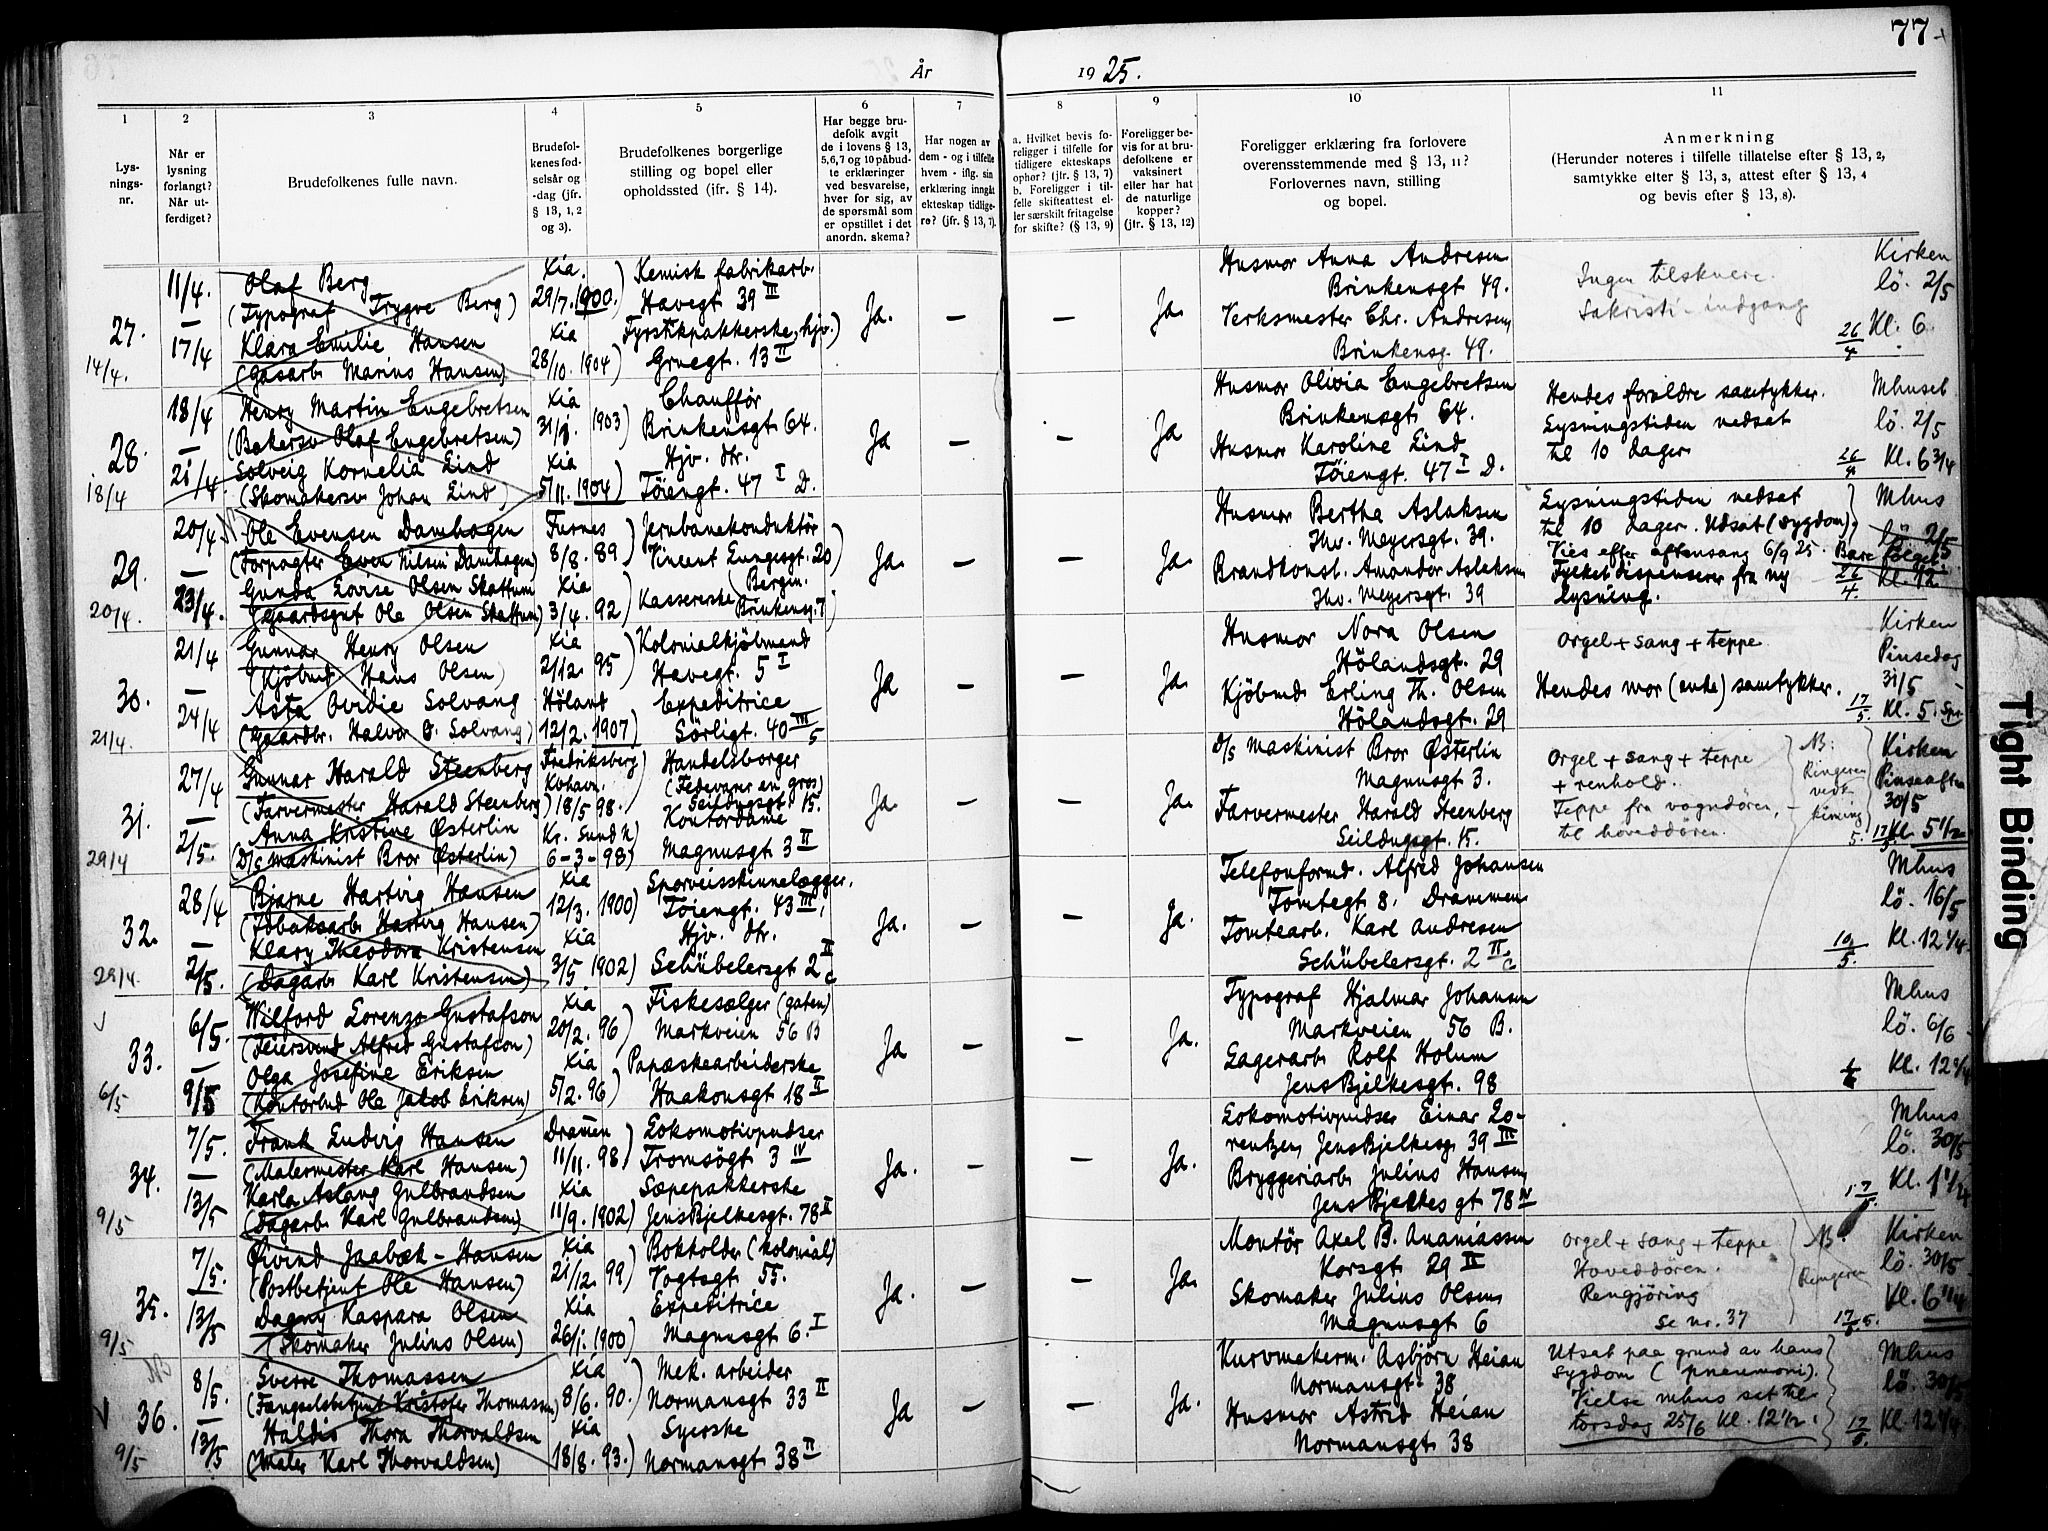 77
År 1925.
1
2
3
4
5
6
7
8
9
10
11
Lysnings-nr.
Når er lysning forlangt? Når utferdiget?
Brudefolkenes fulle navn.
Brudefolkenes fødselsår og -dag (jfr. § 13, 1, 2 og 3).
Brudefolkenes borgerlige stilling og bopel eller opholdssted (jfr. § 14).
Har begge brudefolk avgit de i lovens § 13, 5,6,7 og 10 påbudte erklæringer ved besvarelse, hver for sig, av de spørsmål som er opstillet i det anordn. skema?
Har nogen av dem - og i tilfelle hvem - iflg. sin erklæring inngått ekteskap tidligere? (jfr. § 13, 7).
a. Hvilket bevis foreligger i tilfelle for tidligere ekteskaps ophør? (jfr. § 13, 7) b. Foreligger i tilfelle skifteattest eller særskilt fritagelse for skifte? (§ 13, 9)
Foreligger bevis for at brudefolkene er vaksinert eller har hat de naturlige kopper? (jfr. § 13, 12)
Foreligger erklæring fra forlovere overensstemmende med § 13, 11? Forlovernes navn, stilling og bopel.
Anmerkning (Herunder noteres i tilfelle tillatelse efter § 13, 2, samtykke efter § 13, 3, attest efter § 13, 4 og bevis efter § 13, 8).
27.
14/4.
11/4.
—
17/4
Olaf Berg
(Typograf Trygve Berg)
Klara Emilie Hansen
(Gasarb. Marius Hansen)
Xia.
29/7. 1900.)
Xia
28/10. 1904)
Kemisk fabrikarb.
Havegt 39 III
Fyrstikpakkerske, hjv.)
Gruegt. 13 II
Ja.
—
—
Ja.
Husmor Anna Andresen
Brinkensgt 49.
Verksmester Chr. Andresen
Brinkensg. 49.
Ingen tilskuere.
Sakristi-indgang
26/4
Kirken
lö. 2/5
Kl. 6.
28.
18/4
18/4
—
21/4.
Henry Martin Engebretsen
(Bakersv. Olaf Engebretsen)
Solveig Kornelia Lind
(Skomakersv. Johan Lind)
Xia
31/8. 1903)
Xia
5/11. 1904)
Chauffør
Brinkensgt. 64.
Hjv. dtr.
Töiengt. 47 I D.
Ja
—
—
Ja
Husmor Olivia Engebretsen
Brinkensgt. 64.
Husmor Karoline Lind
Töiengt. 47 I D.
Hendes foreldre samtykker.
Lysningstiden nedsat
til 10 dager
26/4
Mhuset
lö. 2/5
Kl. 6 3/4
29.
20/4.
20/4
—
23/4.
Ole Evensen Damhagen
(Forpagter Even Nilsen Damhagen)
Gunda Lovise Olsen Skattum
(Gaardsgut Ole Olsen Skattum)
Furnes
8/8. 89)
Xia
3/4. 92)
Jernbanekonduktör
Vincent Lungesgt. 20)
Bergen.
Kassererske Brinkensg. 7)
Ja.
—
—
Ja.
Husmor Bertha Aslaksen
Thv. Meyersgt. 39.
Brandkonst. Amandor Aslaksen
Thv. Meyersgt. 39
Lysningstiden nedsat
til 10 dager. Udsat (sygdom).
Vies efter aftensang 6/9 25. Bare følget.
Fylket dispenserer fra ny
lysning.
26/4.
Mhus
lö 2/5
Kl. 12
30.
21/4.
21/4
—
24/4
Gunnar Henry Olsen
(Kjøbmd Hans Olsen)
Asta Ovidie Solvang
(Gaardbr. Halvor O. Solvang)
Xia
21/12. 95)
Höland
12/2. 1907)
Kolonialkjöbmand
Havegt. 5 I
Expeditrice
Sörligt. 40 III/5
Ja
—
—
Ja.
Husmor Nora Olsen
Hölandsgt. 29
Kjöbmd. Erling Th. Olsen
Hölandsgt. 29
Orgel + sang + teppe
Hendes mor (enke) samtykker.
17/5.
Kirken
Pinsedag
31/5
Kl. 5.
31.
29/4
27/4
—
2/5.
Gunnar Harald Steenberg
(Farvermester Harald Steenberg)
Anna Kristine Østerlin
(D/s maskinist Bror Østerlin)
Fredriksberg)
Kbhavn.
18/5 98.)
Kr. sund N)
6-3-98)
Handelsborger
(Fedevarer en gros)
Seildugsgt. 15.
Kontordame
Magnusgt 3 II
Ja.
—
—
Ja.
D/s Maskinist Bror Østerlin
Magnusgt 3.
Farvermester Harald Steenberg
Seildugsgt. 15.
Orgel + sang + teppe
+ renhold.
Teppe fra vogndören,
til hoveddören.
NB:
Ringeren
vedk.
kiming
17/5.
Kirken
Pinseaften
30/5
Kl. 5 1/2
32.
29/4.
28/4
—
2/5.
Bjarne Hartvig Hansen
(Tobaksarb. Hartvig Hansen)
Klary Theodora Kristensen
(Dagarb. Karl Kristensen)
Xia
12/3. 1900)
Xia
3/5 1902)
Sporveisskinnelægger.
Töiengt. 43 III,
Hjv. dtr.
Schübelersgt 2 II c
Ja.
—
—
Ja.
Telefonformd. Alfred Johansen
Tomtegt 8. Drammen
Tomtearb. Karl Andresen
Schübelersgt. 2 II c
10/5.
Mhus
lö. 16/5
Kl. 12 1/4
33.
6/5
6/5.
—
9/5
Wilford Lorenzo Gustafson
(Feiersvend Alfred Gustafson)
Olga Josefine Eriksen
(Kontorbud Ole Jakob Eriksen)
Xia
20/2. 96)
Xia
5/2. 96)
Fiskesælger (gaten)
Markveien 56 B
Papæskearbeiderske
Haakonsgt 18 II
Ja
—
—
Ja.
Typograf Hjalmar Johansen
Markveien 56 B.
Lagerarb. Rolf Holum
Jens Bjelkesgt. 98
Mhus
lö. 6/6
Kl. 12
34.
9/5
7/5.
—
13/5
Frank Ludvig Hansen
(Malermester Karl Hansen)
Karla Aslaug Gulbrandsen
(Dagarb. Karl Gulbrandsen)
Dramen
11/11. 98)
Xia
11/9. 1902)
Lokomotivpudser
Tromsögt 3 IV
Sæpepakkerske
Jens Bjelkesgt. 78 II
Ja.
—
—
Ja.
Lokomotivpudser Einar Lo-
rentzen, Jens Bjelkesg. 39 III
Bryggeriarb. Julius Hansen
Jens Bjelkes gt 78 IV
17/5.
Mhus
lö. 30/5
35.
9/5
7/5.
13/5
Øivind Jaabæk-Hansen
(Postbetjent Ole Hansen)
Dagny Kaspara Olsen
(Skomaker Julius Olsen)
Xia
21/12. 99)
Xia
26/1. 1900)
Bokholder (kolonial)
Vogtsgt. 55.
Expeditrice
Magnusgt 6. I
Ja.
—
—
Ja.
Montör Axel B. Ananiassen
Korsgt. 29 IV
Skomaker Julius Olsen
Magnusgt 6
Orgel + sang + teppe
Hoveddören.
Rengjöring
Se nr. 37
NB.
Ringeren
17/5.
Kirken
lö. 30/5
Kl. 6 1/4
36.
9/5
8/5.
—
13/5
Sverre Thomassen
(Fængselsbetjent Kristofer Thomassen)
Haldis Thora Thorvaldsen
(Maler Karl Thorvaldsen)
Xia
8/6. 90.)
Xia
18/8. 93.)
Mek. arbeider
Normansgt 33 II
Syerske
Normansgt 38 II
Ja
—
—
Ja.
Kurvmakerm. Asbjörn Heian
Normansgt. 38
Husmor Astrid Heian
Normansgt 38
Utsat paa grund av hans
sygdom (pneumoni).
Vielse mhus sat til
torsdag 25/6 Kl. 12 1/2.
17/5.
Mhus
lö. 30/5
Kl. 12 1/4
Tight Binding